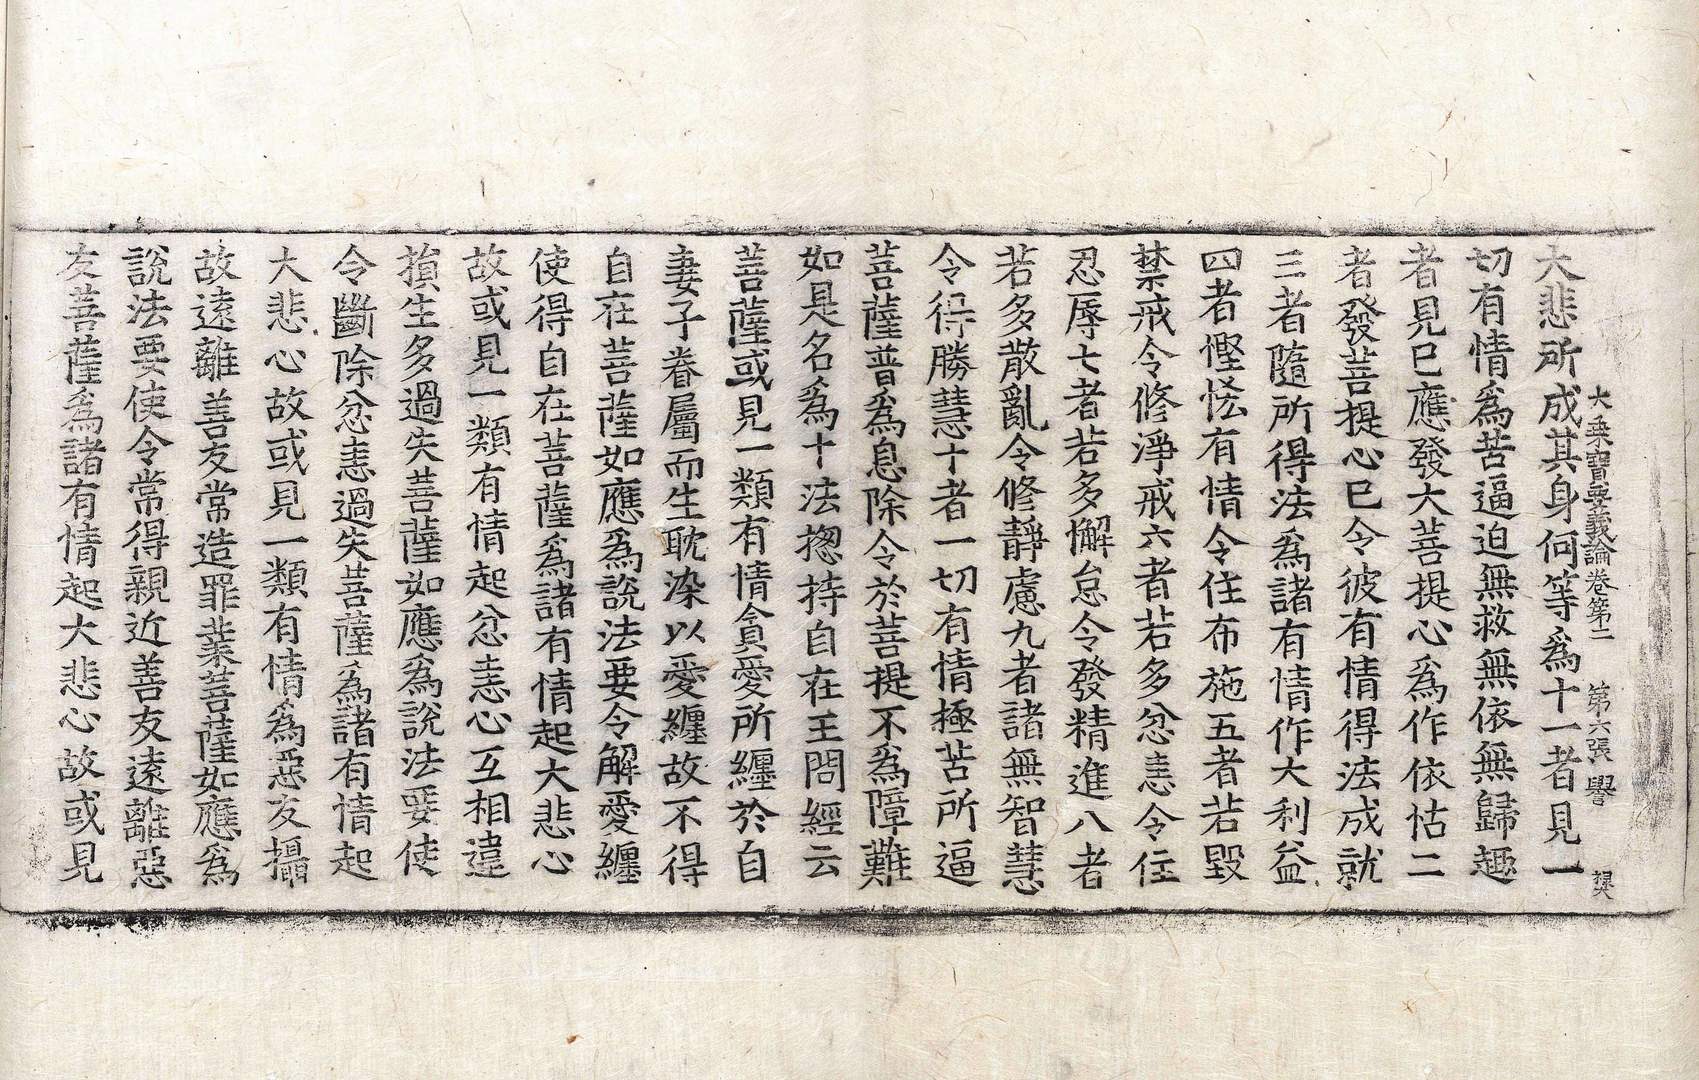 大乗寶要義論卷第二 第六張 譽
大悲所成其身何等爲十一者見一
切有情爲苦逼迫無救無依無歸趣
者見已應發大菩提心爲作依怙二
者發菩提心已令彼有情得法成就
三者隨所得法爲諸有情作大利益
四者慳悋有情令住布施五者若毀
禁戒令修淨戒六者若多忿恚令住
忍辱七者若多懈怠令發精進八者
若多散亂令修靜慮九者諸無智慧
令得勝慧十者一切有情極苦所逼
菩薩普爲息除令於菩提不爲障難
如是名爲十法揔持自在王問經云
菩薩或見一類有情貪愛所纏於自
妻子眷屬而生耽染以愛纏故不得
自在菩薩如應爲說法要令解愛纏
使得自在菩薩爲諸有情起大悲心
故或見一類有情起忿恚心互相違
損生多過失菩薩如應爲說法要使
令斷除忿恚過失菩薩爲諸有情起
大悲心故或見一類有情爲惡友攝
故遠離善友常造罪業菩薩如應爲
說法要使令常得親近善友遠離惡
友菩薩爲諸有情起大悲心故或見